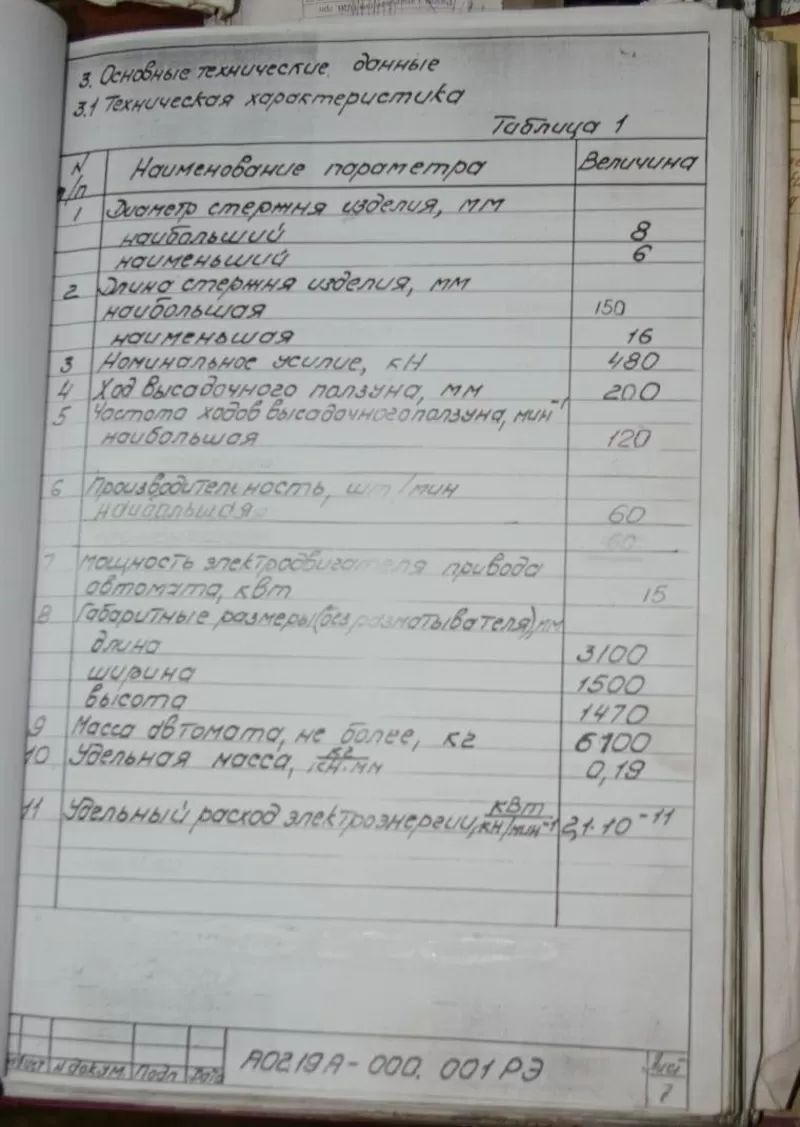 3. Основные технические данные
3.1 Техническая характеристика
Таблица 1
N п/п Наименование параметра Величина
1 Диаметр стержня изделия, мм
наибольший 8
наименьший 6
2 Длина стержня изделия, мм
наибольшая 150
наименьшая 16
3 Номинальное усилие, кН 480
4 Ход высадочного ползуна, мм 200
5 Частота ходов высадочного ползуна, мин⁻¹
наибольшая 120
6 Производительность, шт/мин
наибольшая 60
60
7 Мощность электродвигателя привода
автомата, кВт 15
8 Габаритные размеры (без разматывателя), мм
длина 3100
ширина 1500
высота 1470
9 Масса автомата, не более, кг 6100
10 Удельная масса, кг/кН·мм 0,19
11 Удельный расход электроэнергии, кВт/кН/мин⁻¹ 2,1·10⁻¹¹
Лист N докум. Подп Дата
АО219А-000.001РЭ
Лист
7